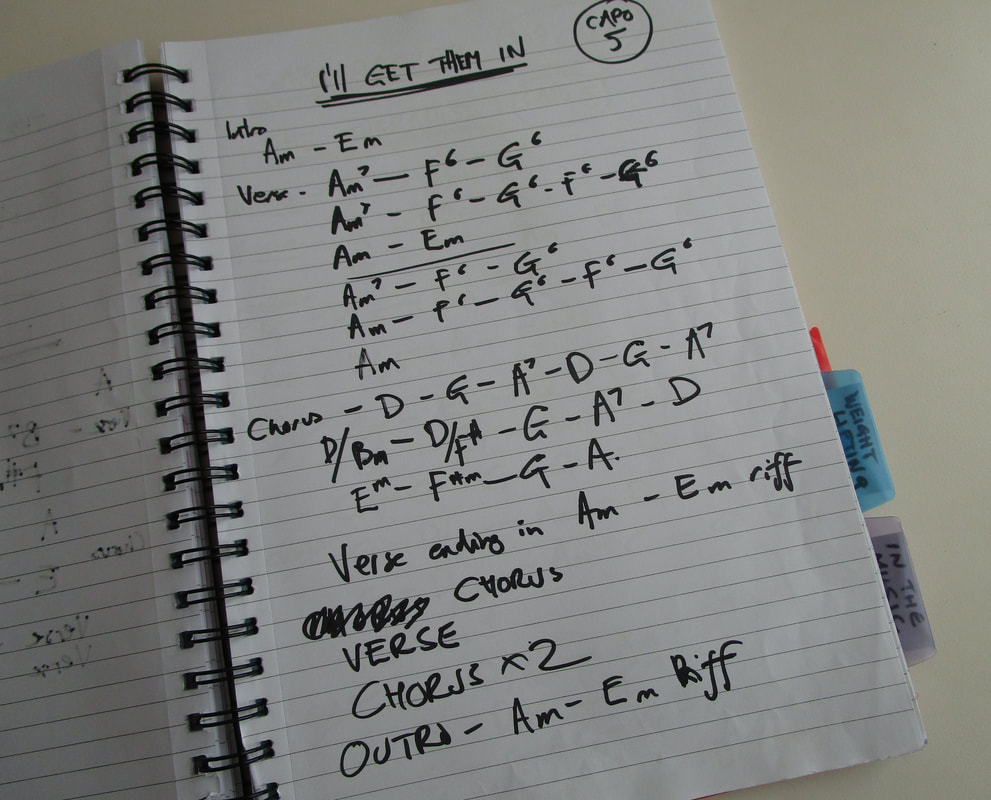 I'll GET THEM IN
CAPO
5
Intro
Am - Em
Verse - Am7 - F6 - G6
Am7 - F6 - G6 - F6 - G6
Am - Em
Am7 - F6 - G6
Am - F6 - G6 - F6 - G6
Am
Chorus - D - G - A7 - D - G - A7
D/Bm - D/F# - G - A7 - D
Em - F#m - G - A.
Verse ending in Am - Em riff
CHORUS
VERSE
CHORUS x2
OUTRO - Am - Em Riff
WEIGHT
LISTING
IN THE